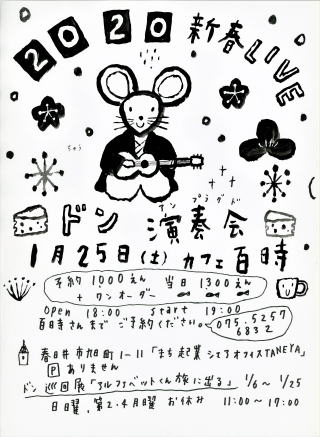 2020 新春 LIVE
ちゅう
アンプラグド
ドン 演奏会
1月25日(土) カフェ百時
予約 1000えん 当日 1300えん
+ ワンオーダー
open 18:00 start 19:00
百時さんまで ご予約ください。 075.5257
6832
春日井市旭町1-11「まち起業シェアオフィスTANEYA」
P ありません
ドン 巡回展「アルファベットくん旅に出る」 1/6~1/25
日曜、第2・4月曜 お休み 11:00~17:00